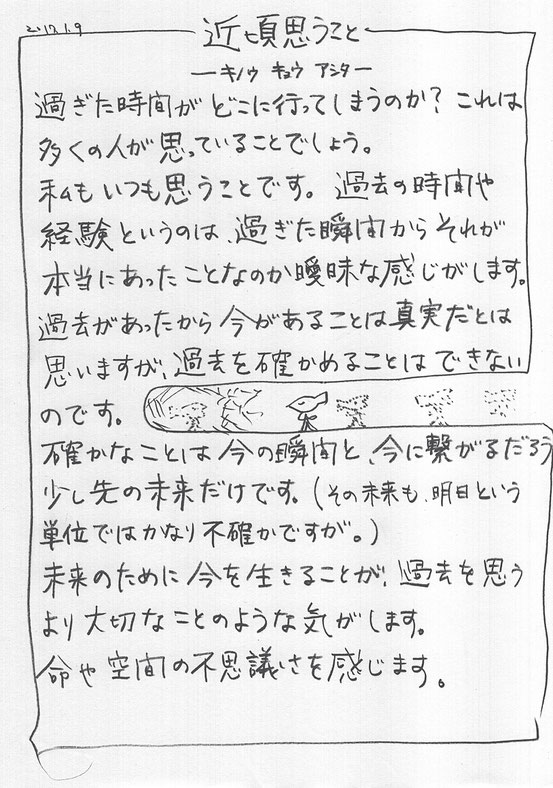 2017.1.9
近頃思うこと
ーキノウ キョウ アシター
過ぎた時間がどこに行ってしまうのか？これは
多くの人が思っていることでしょう。
私もいつも思うことです。過去の時間や
経験というのは、過ぎた瞬間からそれが
本当にあったことなのか曖昧な感じがします。
過去があったから今があることは真実だとは
思いますが、過去を確かめることはできない
のです。
確かなことは今の瞬間と、今に繋がるだろう
少し先の未来だけです。（その未来も、明日という
単位ではかなり不確かですが。）
未来のために今を生きることが、過去を思う
より大切なことのような気がします。
命や空間の不思議さを感じます。